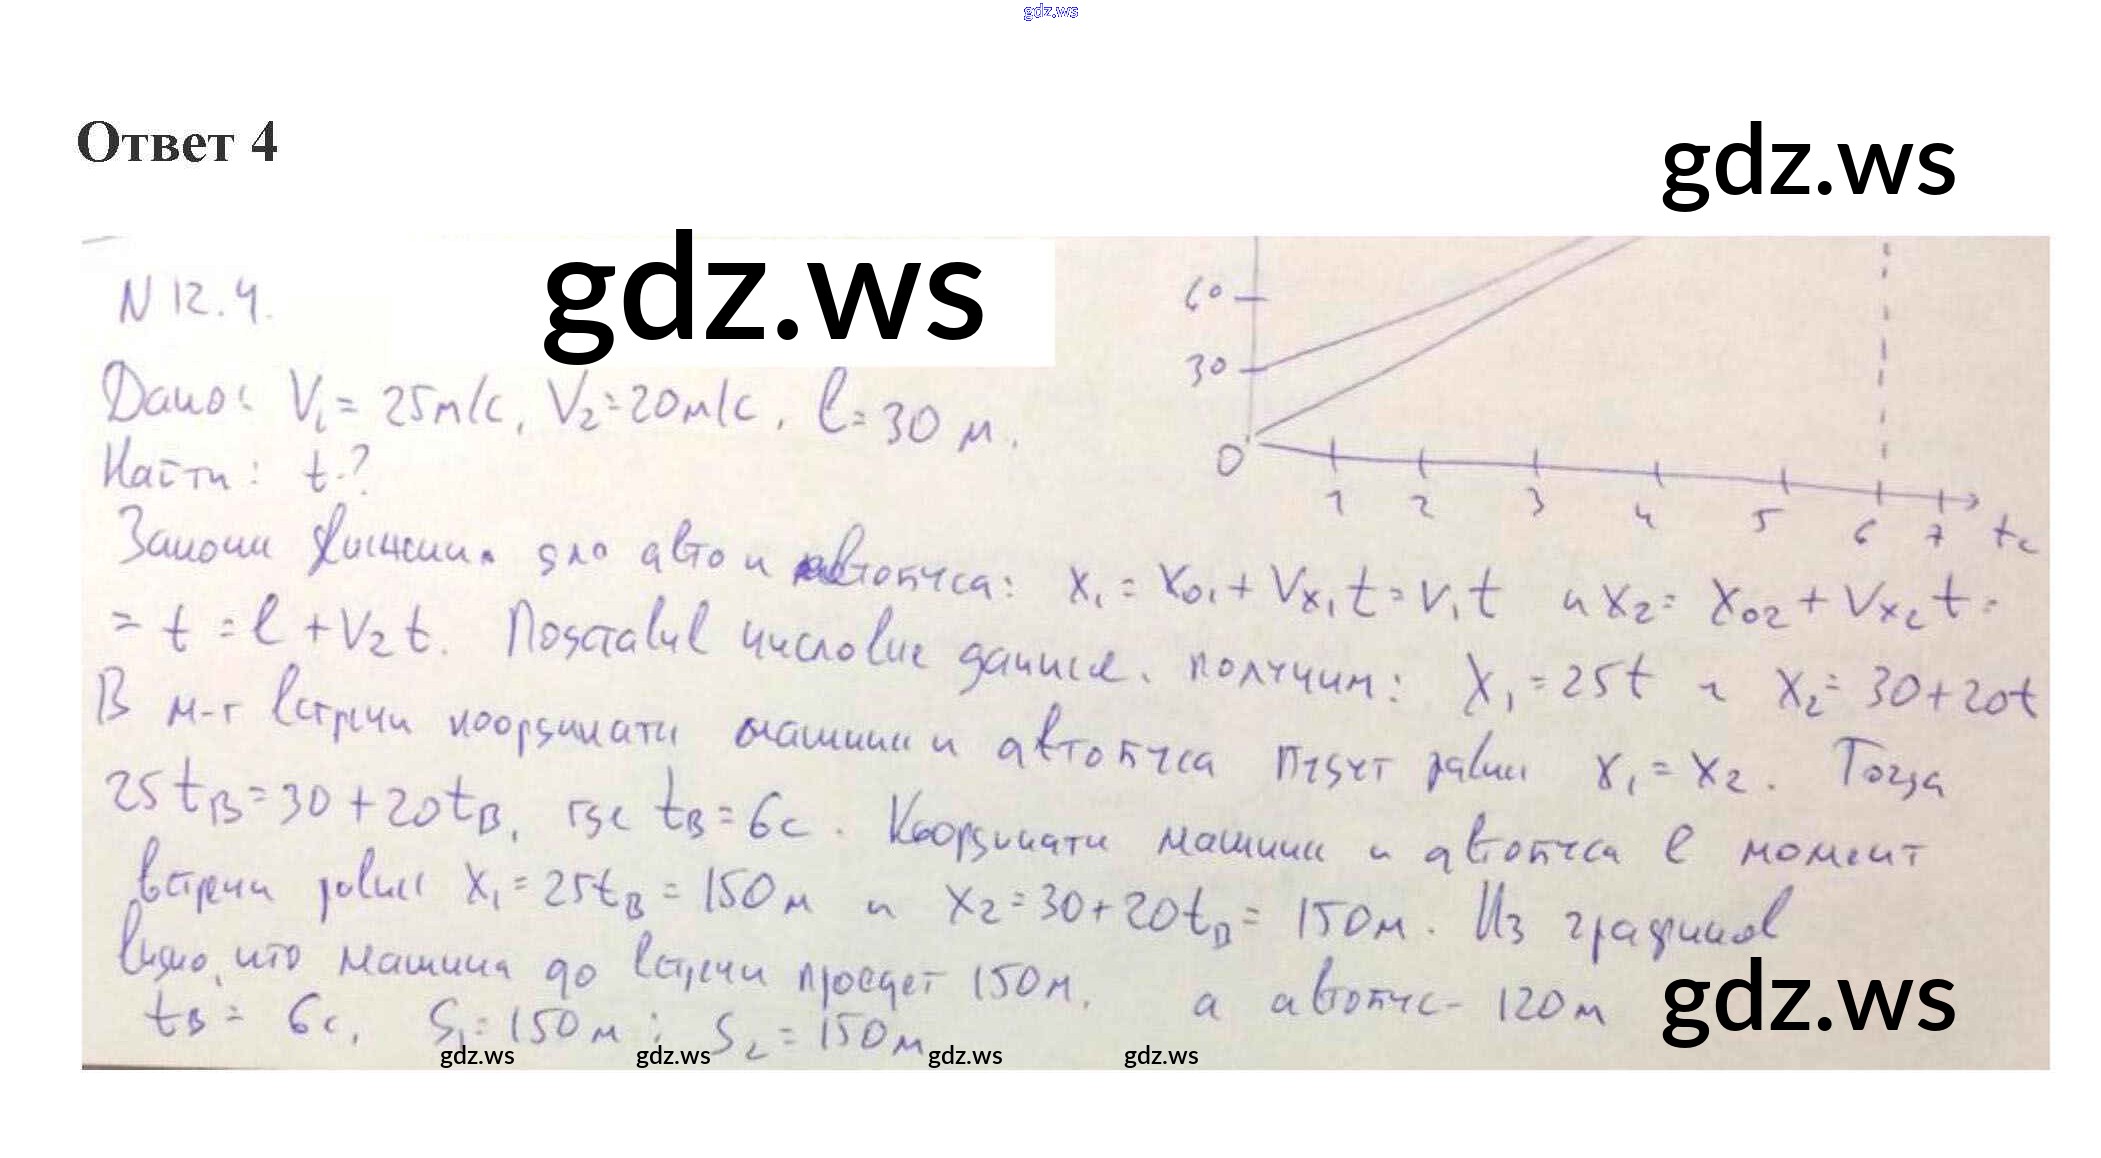 gdz.ws
Ответ 4
gdz.ws
gdz.ws
N 12.4.
60
30
0
1 2 3 4 5 6 7 t c
Дано: V₁ = 25 м/с, V₂ = 20 м/с, l = 30 м.
Найти: t-?
Законы движения для авто и автобуса: x₁ = x₀₁ + Vx₁t = V₁t и x₂ = x₀₂ + Vx₂t =
= t = l + V₂t. Подставив числовые данные, получим: x₁ = 25t и x₂ = 30 + 20t
В м-т встречи координаты машины и автобуса будут равны x₁ = x₂. Тогда
25tB = 30 + 20tB, где tB = 6с. Координаты машины и автобуса в момент
встречи равны x₁ = 25tB = 150м и x₂ = 30 + 20tB = 150м. Из графиков
видно, что машина до встречи проедет 150м, а автобус - 120м
tB = 6с, S₁ = 150м; S₂ = 150м
gdz.ws
gdz.ws gdz.ws gdz.ws gdz.ws